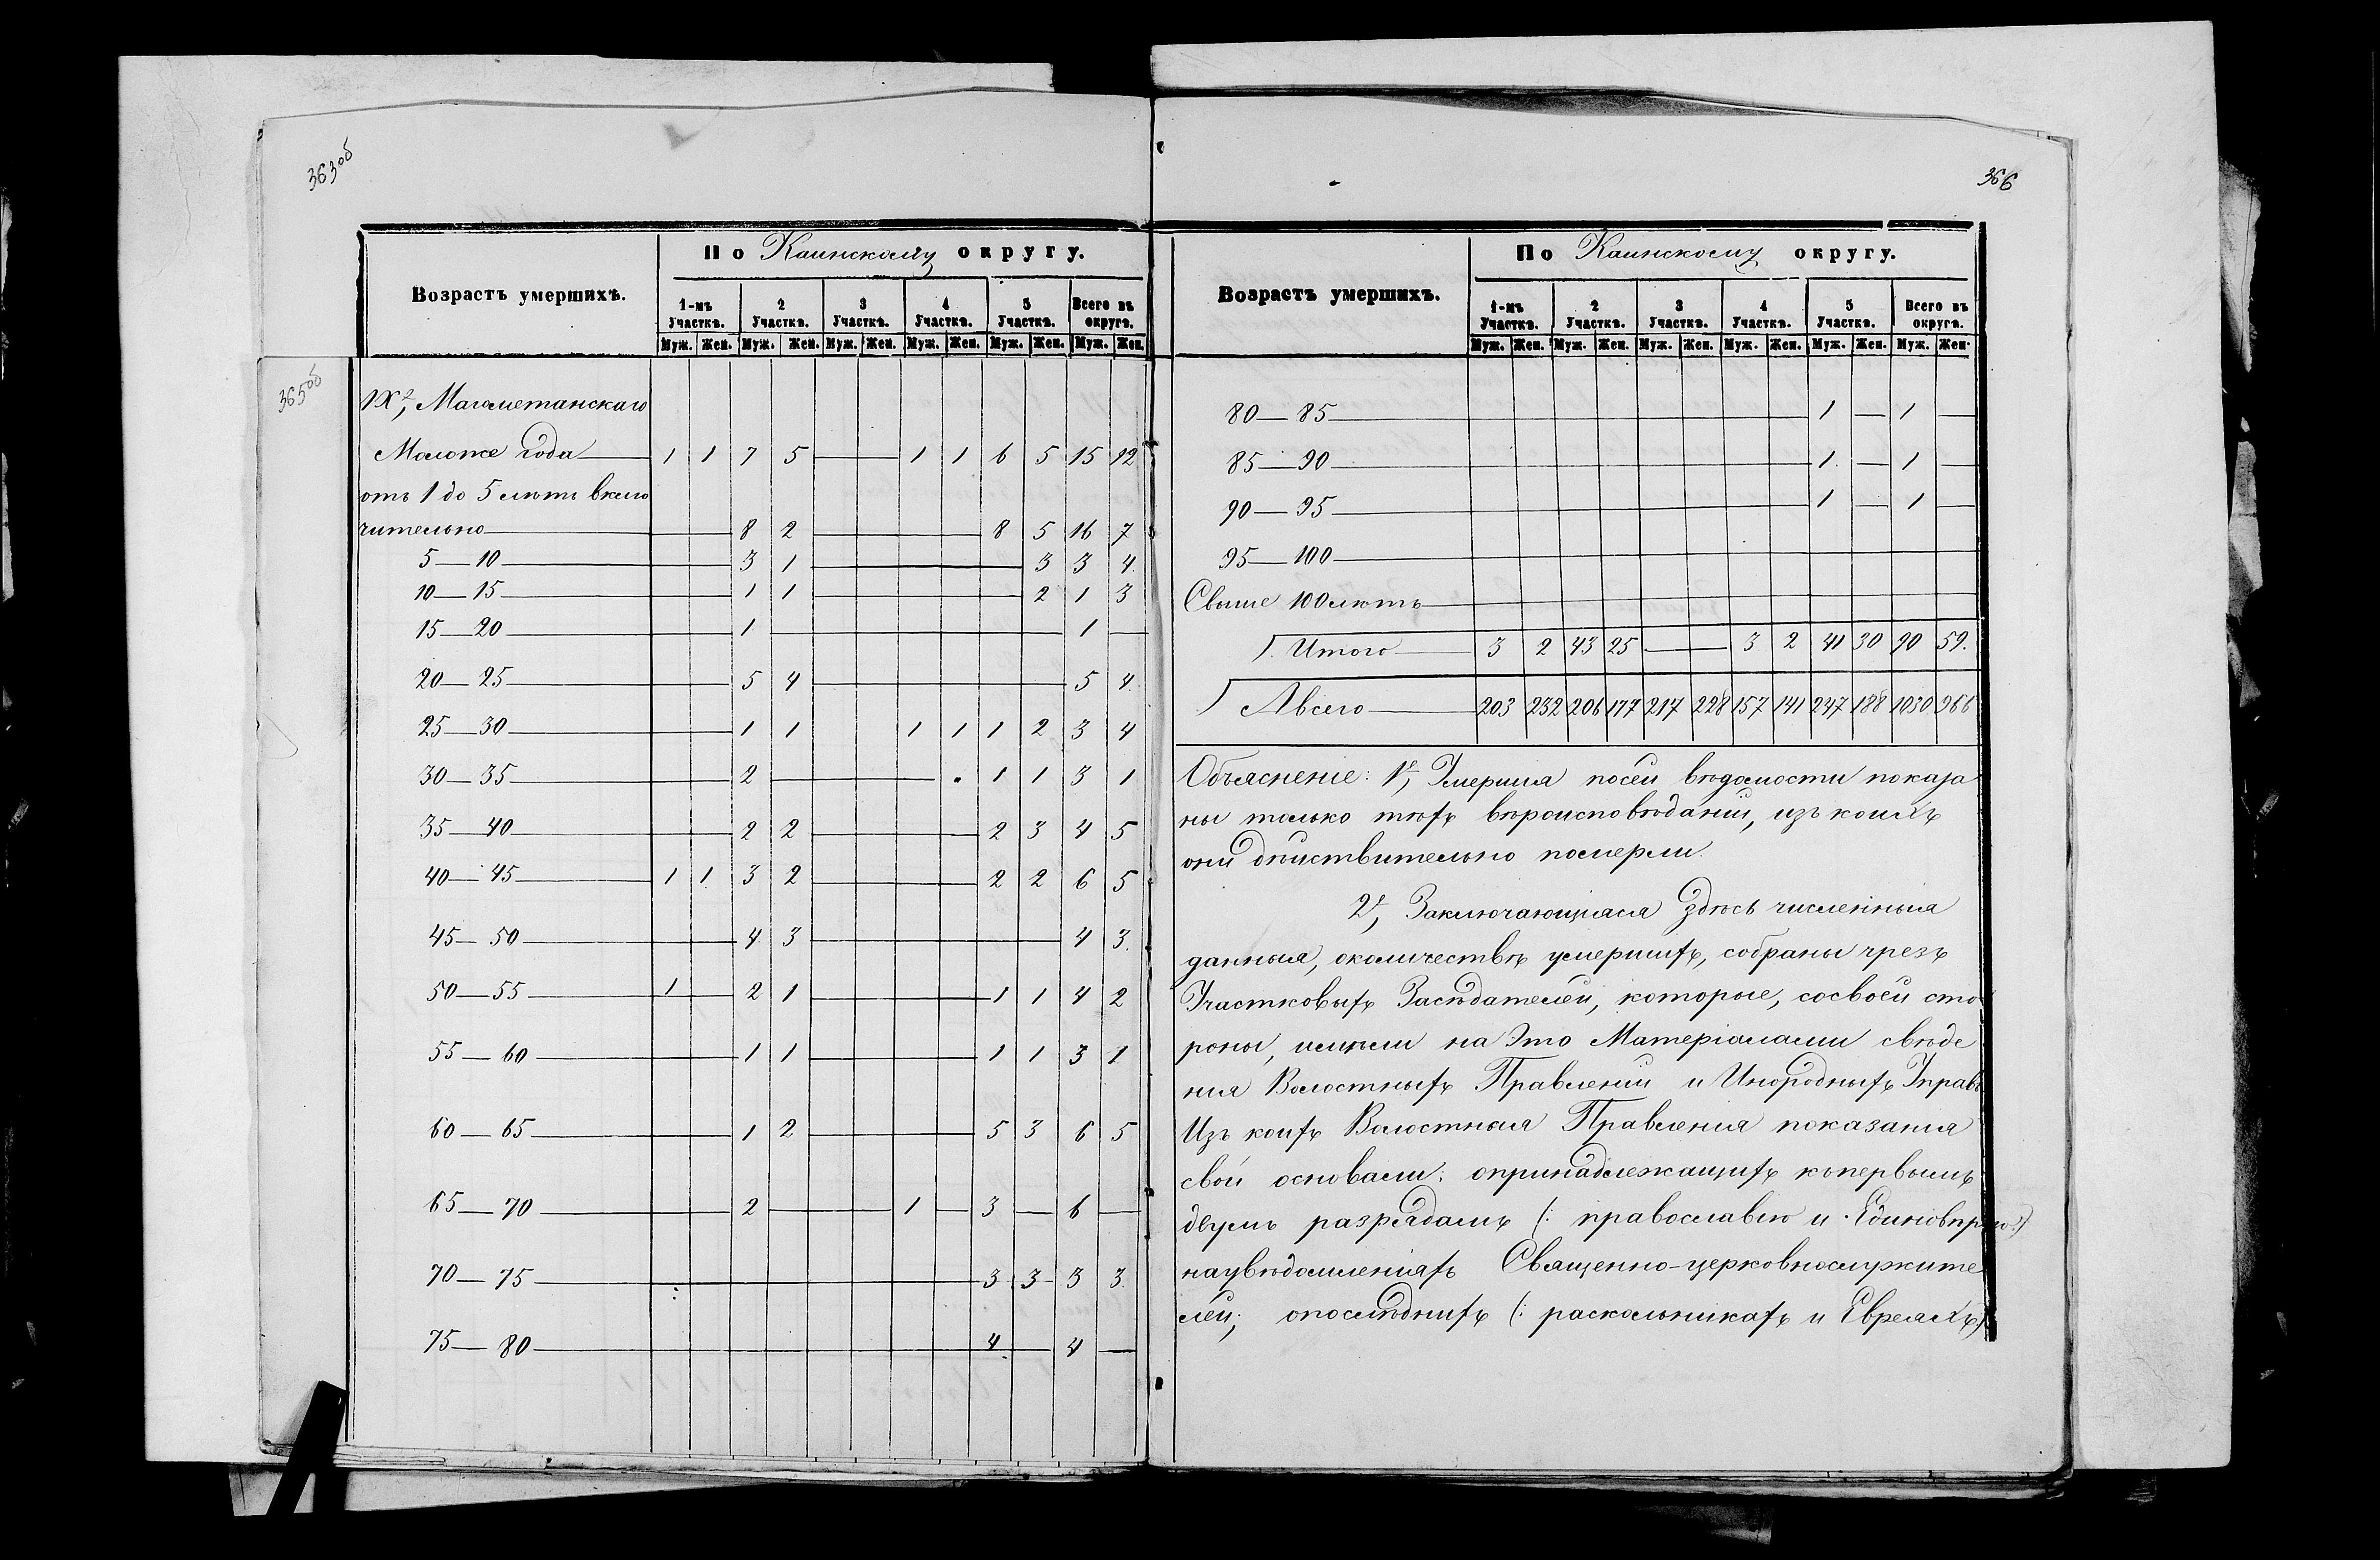 363об
365об
По Каинскому округу.
Возрастъ умершихъ.
1-мъ Участкѣ. 2 Участкѣ. 3 Участкѣ. 4 Участкѣ. 5 Участкѣ. Всего въ округѣ.
Муж. Жен. Муж. Жен. Муж. Жен. Муж. Жен. Муж. Жен. Муж. Жен.
IXе, Магометанскаго
Моложе года — 1 1 7 5 — 1 1 6 5 15 12
отъ 1 до 5 лѣтъ вклю
чительно — 8 2 — 8 5 16 7
5—10 — 3 1 — 3 3 4
10—15 — 1 1 — 2 1 3
15—20 — 1 — 1 —
20—25 — 5 4 — 5 4
25—30 — 1 1 1 1 1 2 3 4
30—35 — 2 — 1 1 3 1
35—40 — 2 2 — 2 3 4 5
40—45 — 1 1 3 2 — 2 2 6 5
45—50 — 4 3 — 4 3.
50—55 — 1 — 2 1 — 1 1 4 2
55—60 — 1 1 — 1 1 3 1
60—65 — 1 2 — 5 3 6 5
65—70 — 2 — 1 — 3 — 6 —
70—75 — 3 3 3 3.
75—80 — 4 — 4 —
366
По Каинскому округу.
Возрастъ умершихъ.
1-мъ Участкѣ. 2 Участкѣ. 3 Участкѣ. 4 Участкѣ. 5 Участкѣ. Всего въ округѣ.
Муж. Жен. Муж. Жен. Муж. Жен. Муж. Жен. Муж. Жен. Муж. Жен.
80—85 — 1 — 1 —
85—90 — 1 — 1 —
90—95 — 1 — 1 —
95—100 —
Свыше 100 лѣтъ —
Итого — 3 2 43 25 — 3 2 41 30 90 59.
Авсего — 203 232 206 177 217 228 157 141 247 188 1030 966
Объясненіе: 1е, Умершія посей вѣдомости показа
ны только тѣхъ вѣроисповѣданій, изъ коихъ
они дѣйствительно померли.
2е, Заключающіяся здѣсь численныя
данныя, околичествѣ умершихъ, собраны чрезъ
Участковыхъ Засѣдателей, которые, сосвоей сто
роны, имѣли на это Матеріалами свѣде
нія Волостныхъ Правленій и Инородныхъ Управъ
Изъ коихъ Волостныя Правленія показанія
свой основали: опринадлежащихъ къпервымъ
двумъ разрядамъ (: православію и Единовѣрію:)
наувѣдомленіяхъ Священно-церковнослужите
лей; опослѣднихъ (: раскольникахъ и Евреяхъ)